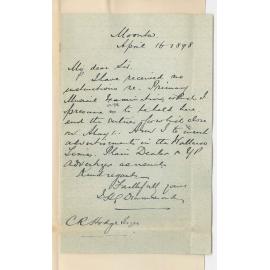 Moonta
April 16 1898
My dear Sir.
I have received no
instructions re. Primary
Musical Examination which I
presume is to be held here
and the entries for which close
on May 1. Am I to insert
advertisements in the Wallaroo
Times. Plain Dealer & YP
Advertiser as usual.
Kind regards
Faithfully yours
C R Hodge Esqre